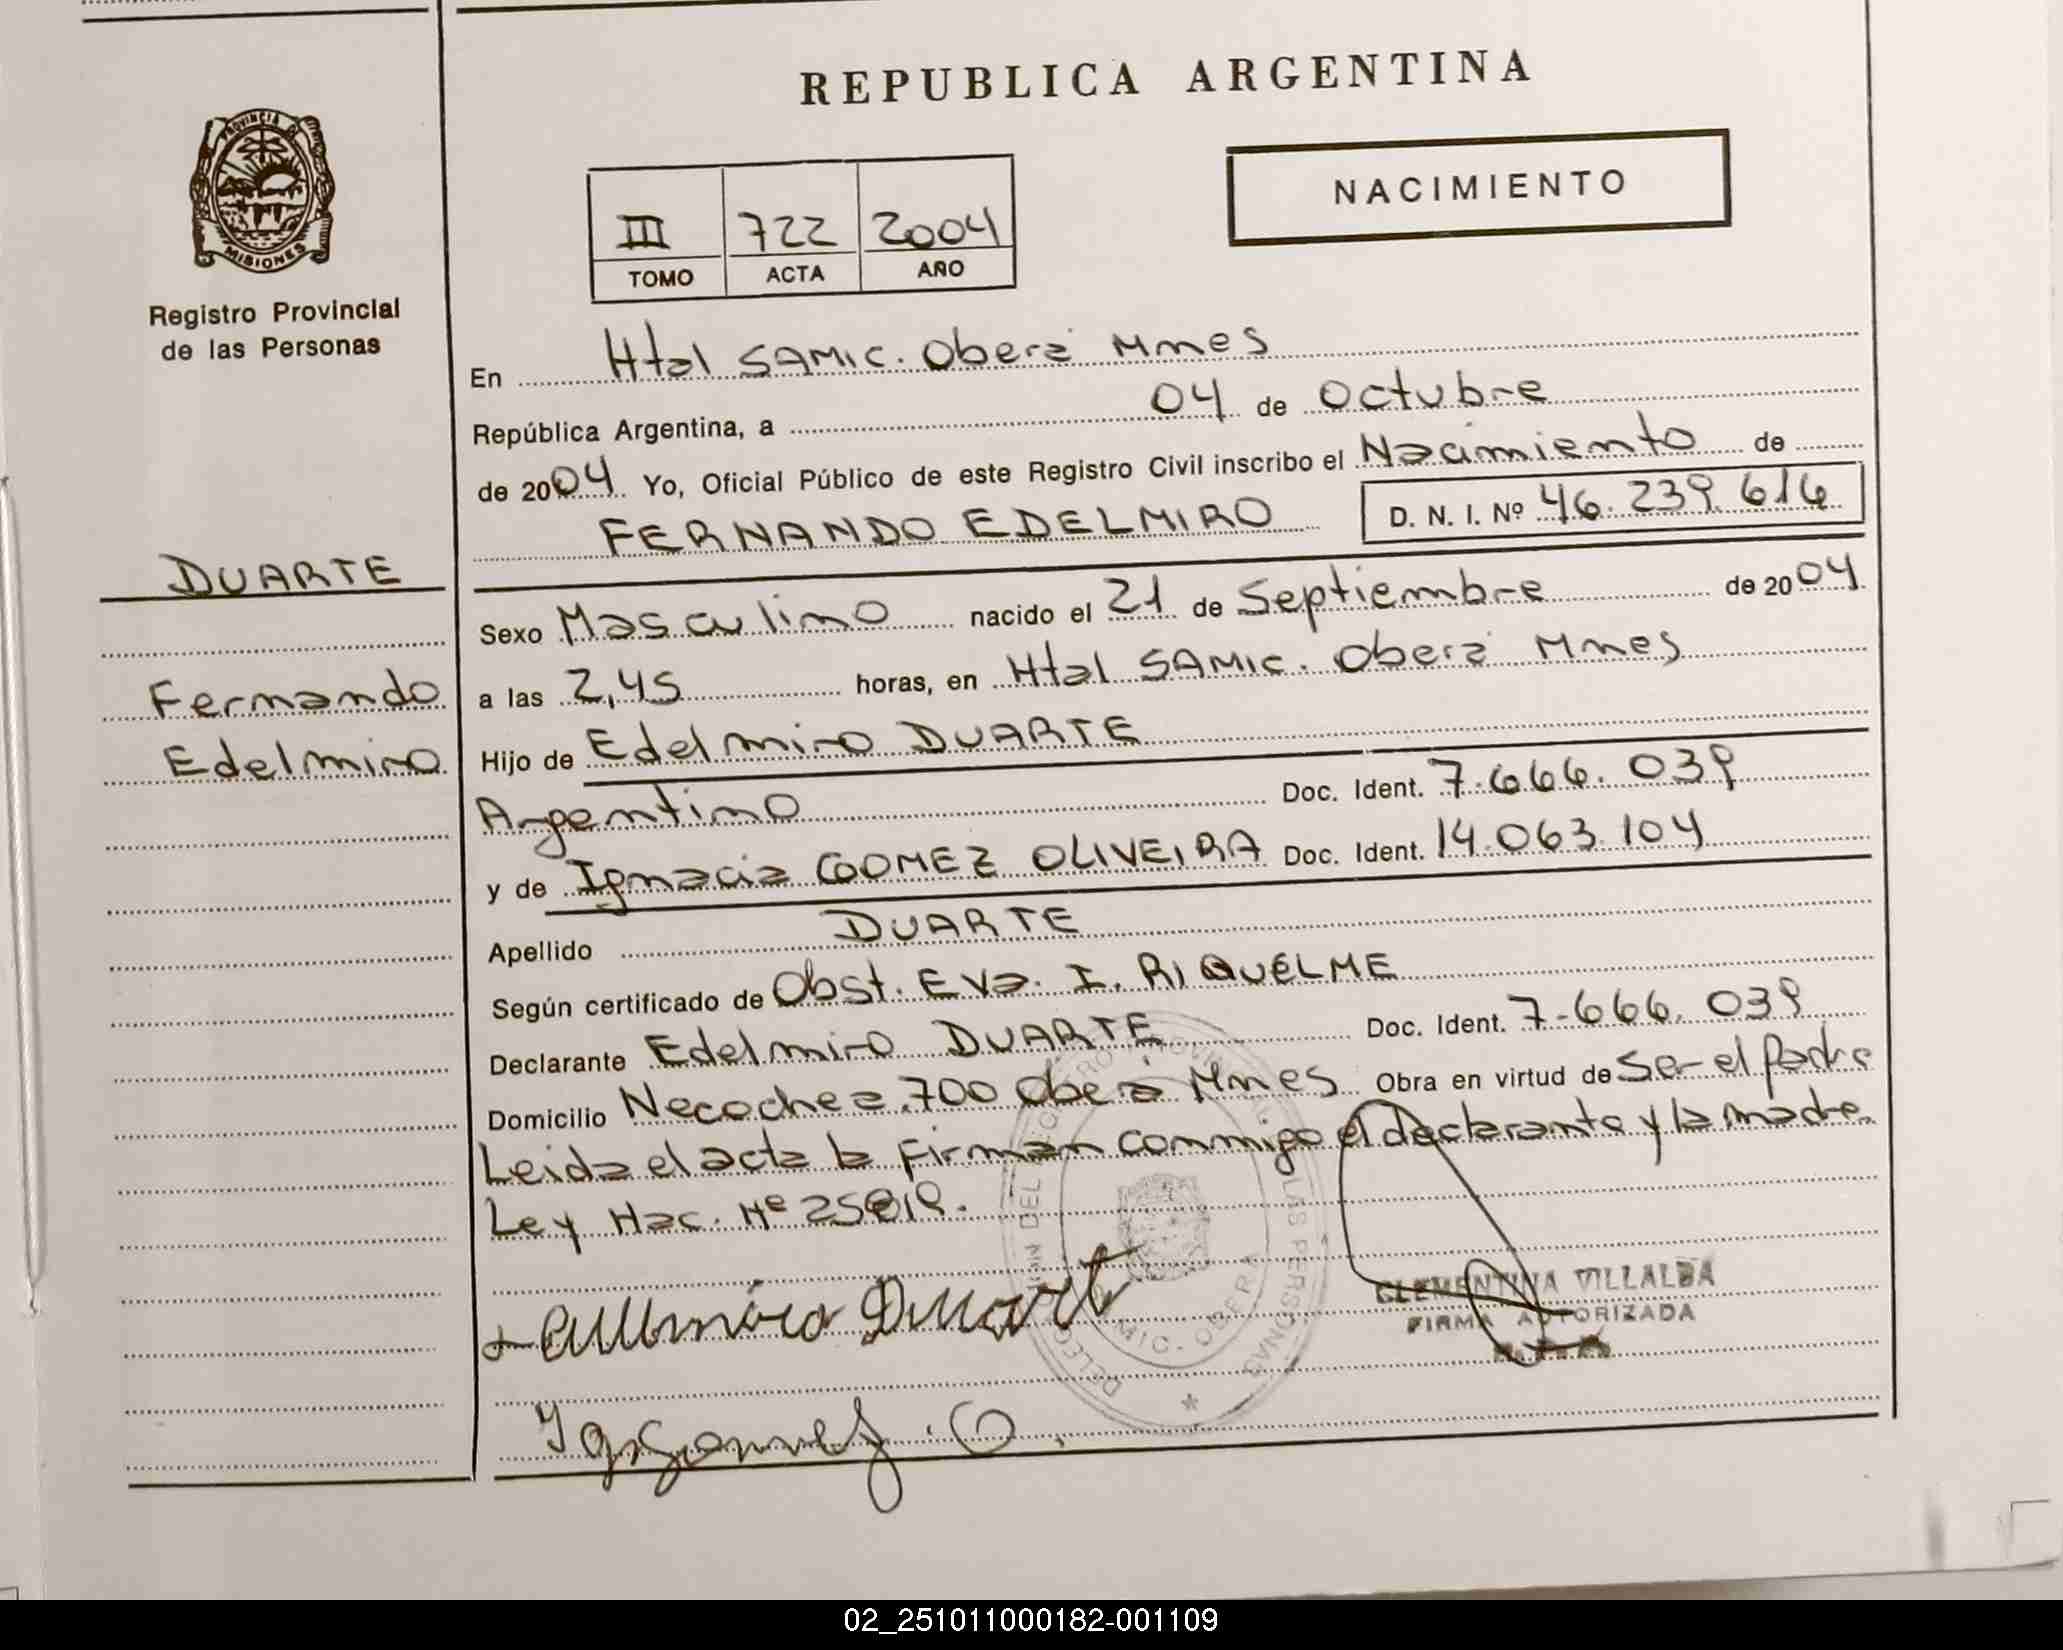 REPUBLICA ARGENTINA
PROVINCIA D
MISIONES
Registro Provincial
de las Personas
NACIMIENTO
III 722 2004
TOMO ACTA AÑO
En Htal SAMIC. Oberá Mnes
República Argentina, a 04 de Octubre
de 2004 Yo, Oficial Público de este Registro Civil inscribo el Nacimiento de
FERNANDO EDELMIRO D. N. I. Nº 46.239.616
DUARTE
Fernando
Edelmiro
Sexo Masculino nacido el 21 de Septiembre de 2004
a las 2,45 horas, en Htal SAMIC. Oberá Mnes
Hijo de Edelmiro DUARTE
Argentino Doc. Ident. 7.666.039
y de Ignacia GOMEZ OLIVEIRA Doc. Ident. 14.063.104
Apellido DUARTE
Según certificado de Obst. Eva. I. RIQUELME
Declarante Edelmiro DUARTE Doc. Ident. 7.666.039
Domicilio Necochea 700 Oberá Mnes Obra en virtud de Ser el Padre
Leida el acta la Firman conmigo el declarante y la madre.
Ley Nac. Nº
Duarte
CLEMENTINA VILLALBA
FIRMA AUTORIZADA
MIC. OBERA
LAS PERSONAS
02_251011000182-001109